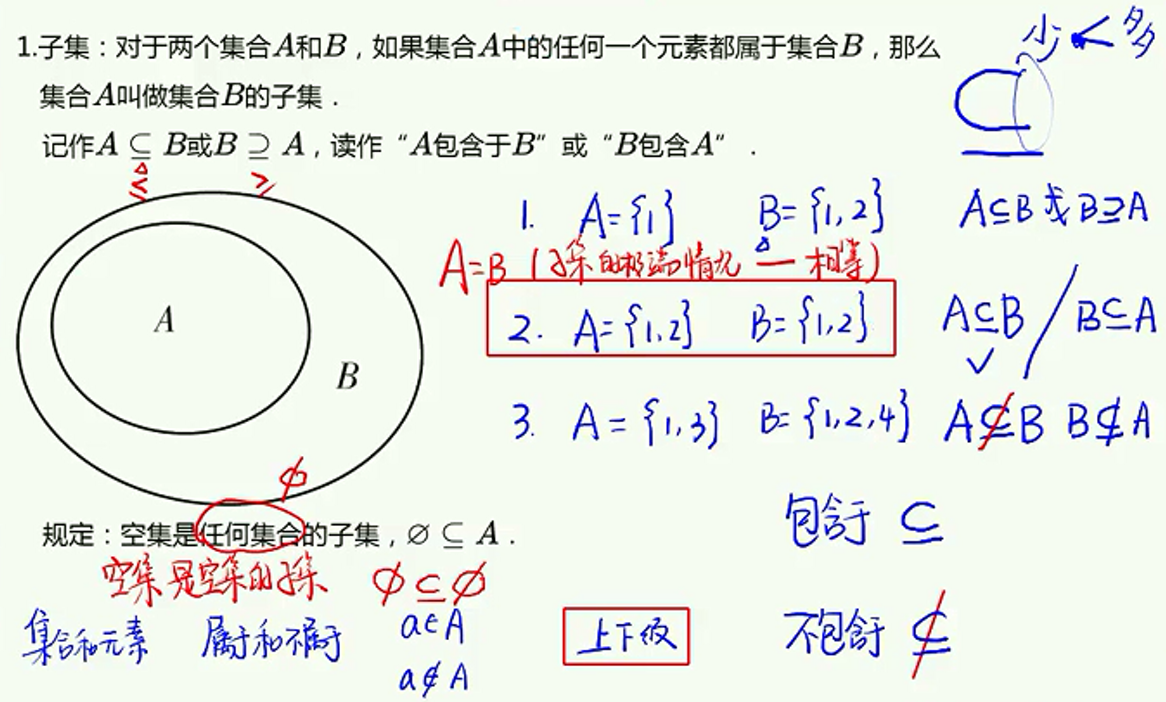 1.子集：对于两个集合A和B，如果集合A中的任何一个元素都属于集合B，那么
集合A叫做集合B的子集．
记作A ⊆ B或B ⊇ A，读作“A包含于B”或“B包含A”．
少 < 多
⊆
≤ ≥
1. A={1} B={1,2} A⊆B 或 B⊇A
A=B (子集的极端情况 — 相等)
2. A={1,2} B={1,2} A⊆B / B⊆A
✓
3. A={1,3} B={1,2,4} A⊈B B⊈A
A
B
∅
规定：空集是任何集合的子集，∅ ⊆ A．
包含于 ⊆
空集是空集的子集 ∅⊆∅
集合和元素 属于和不属于 a∈A
a∉A
上下级
不包含于 ⊈